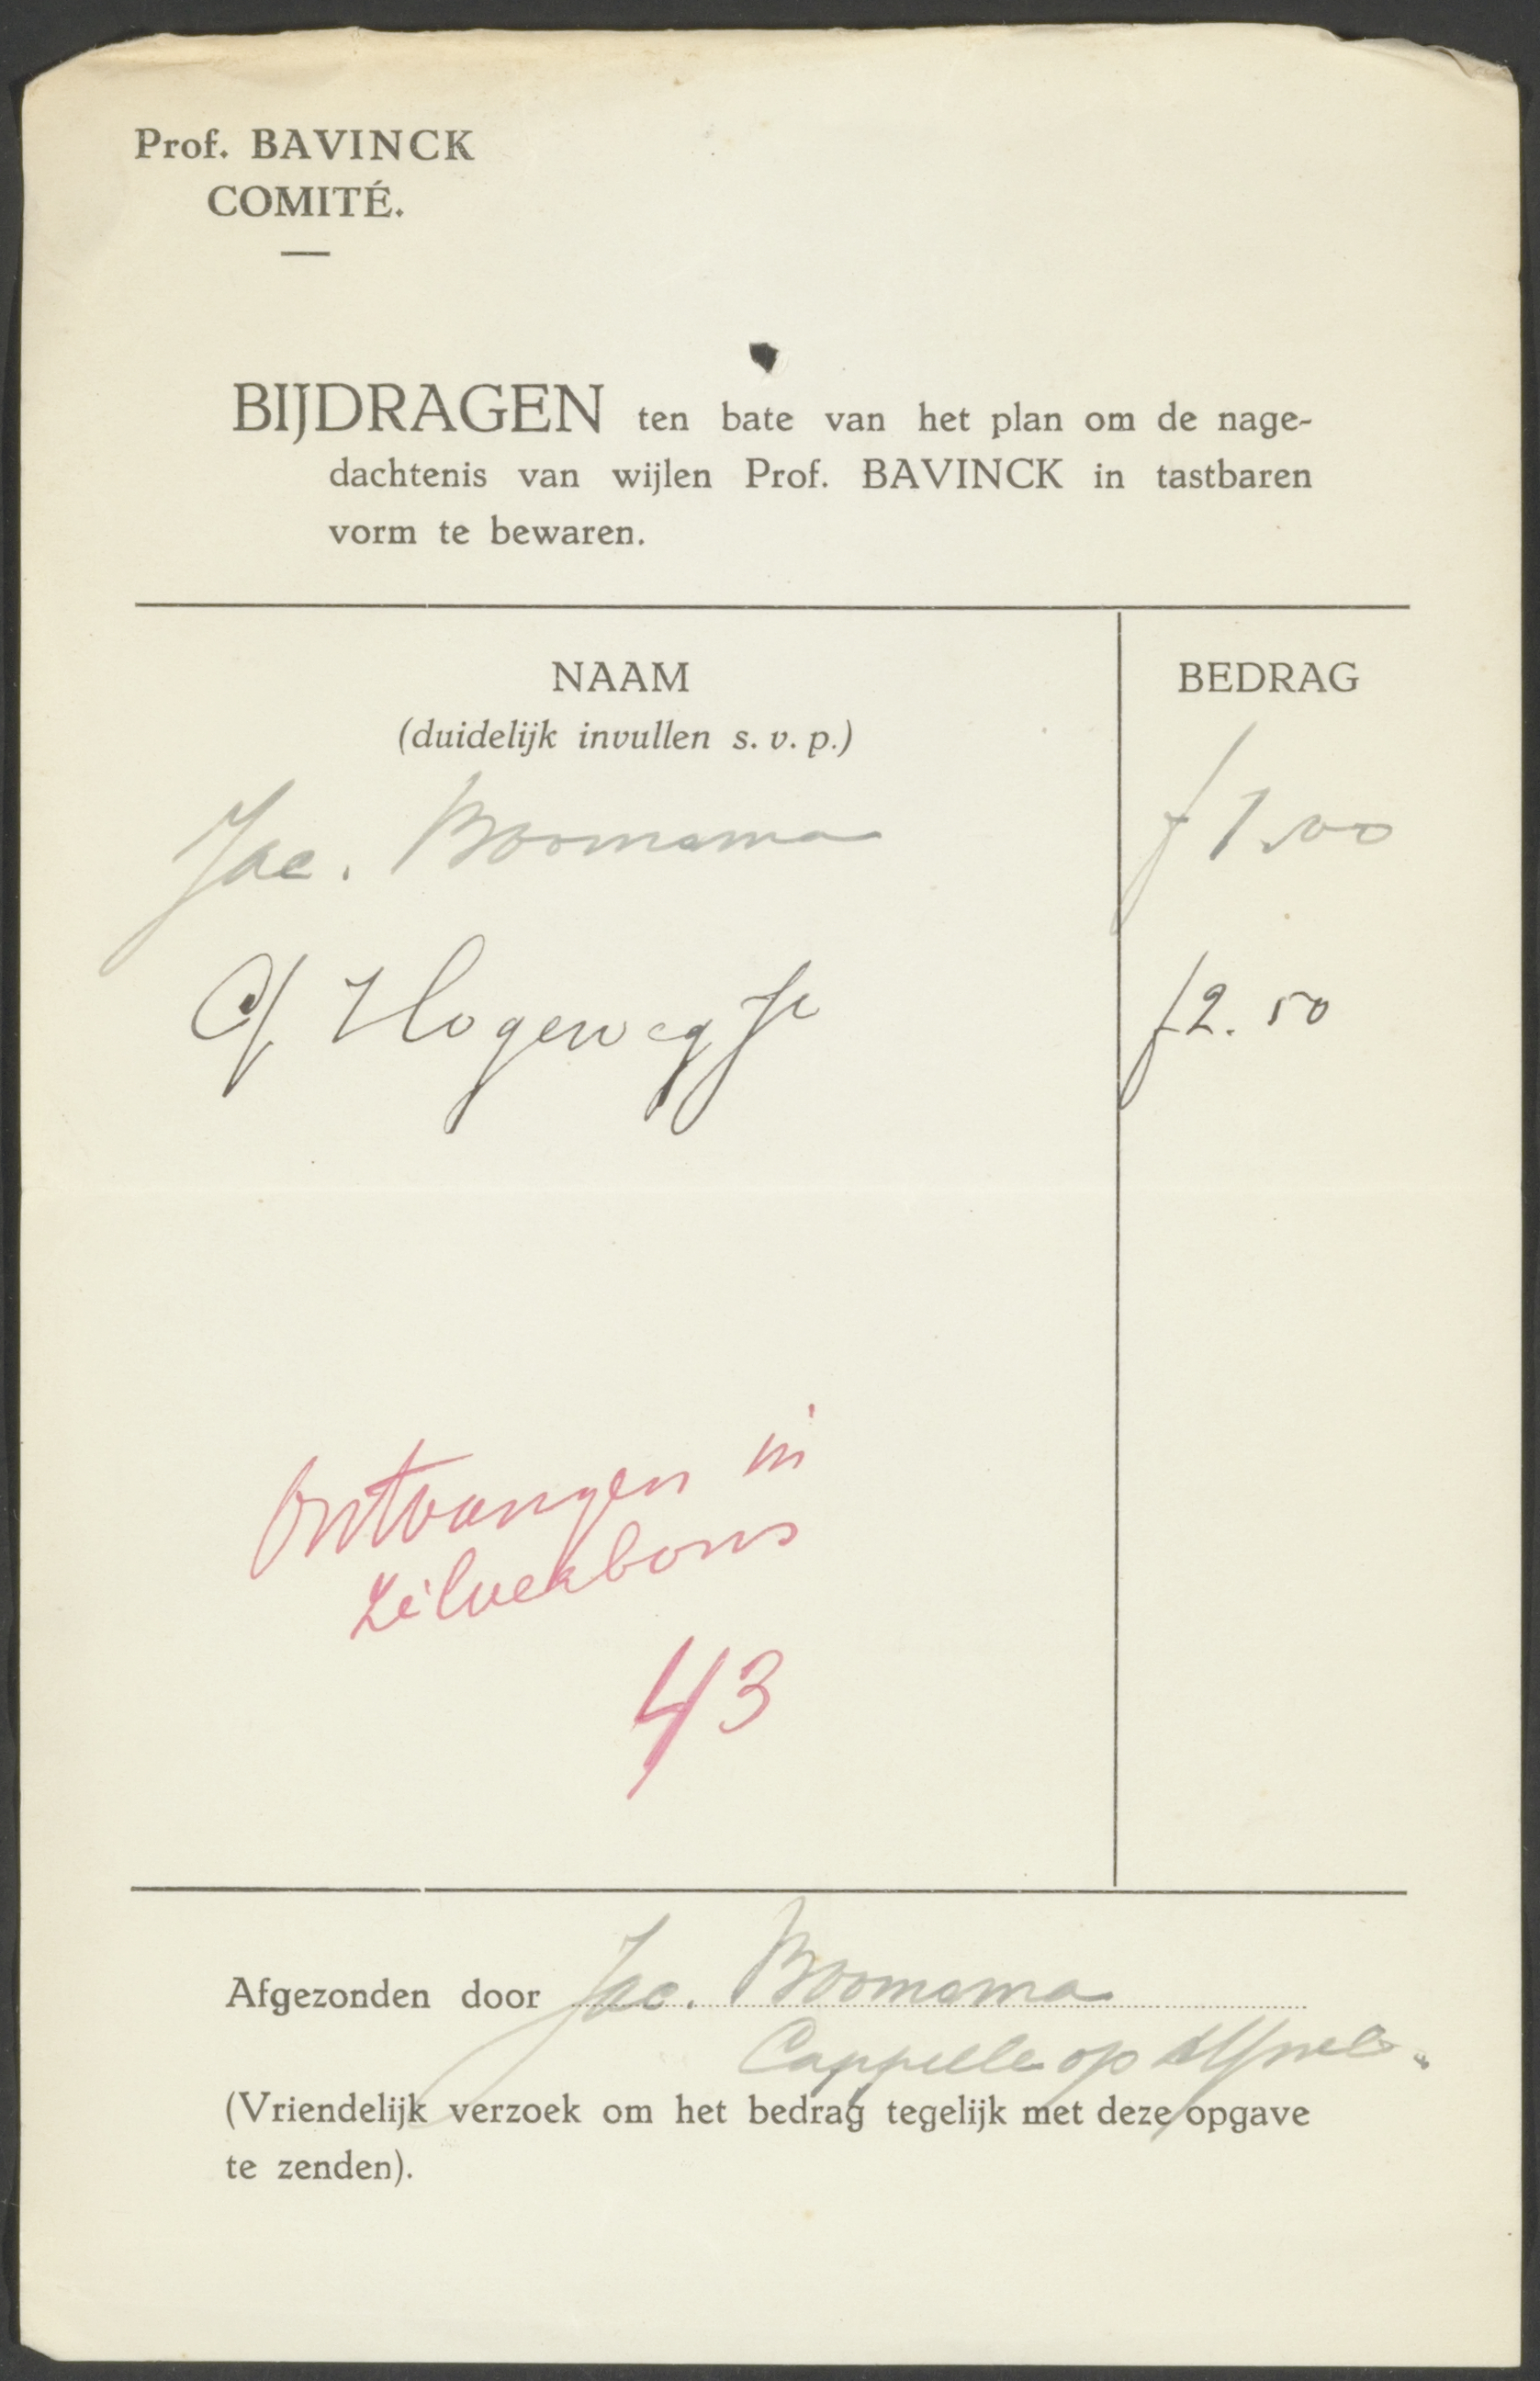 Prof. BAVINCK
COMITÉ.
BIJDRAGEN ten bate van het plan om de nage-
dachtenis van wijlen Prof. BAVINCK in tastbaren
vorm te bewaren.
NAAM BEDRAG
(duidelijk invullen s. v. p.)
Jac. Boomsma f 1.00
Hogeweg Jr f 2.50
Ontvangen in
zilverbons
43
Afgezonden door Jac. Boomsma
Cappelle op d'
(Vriendelijk verzoek om het bedrag tegelijk met deze opgave
te zenden).